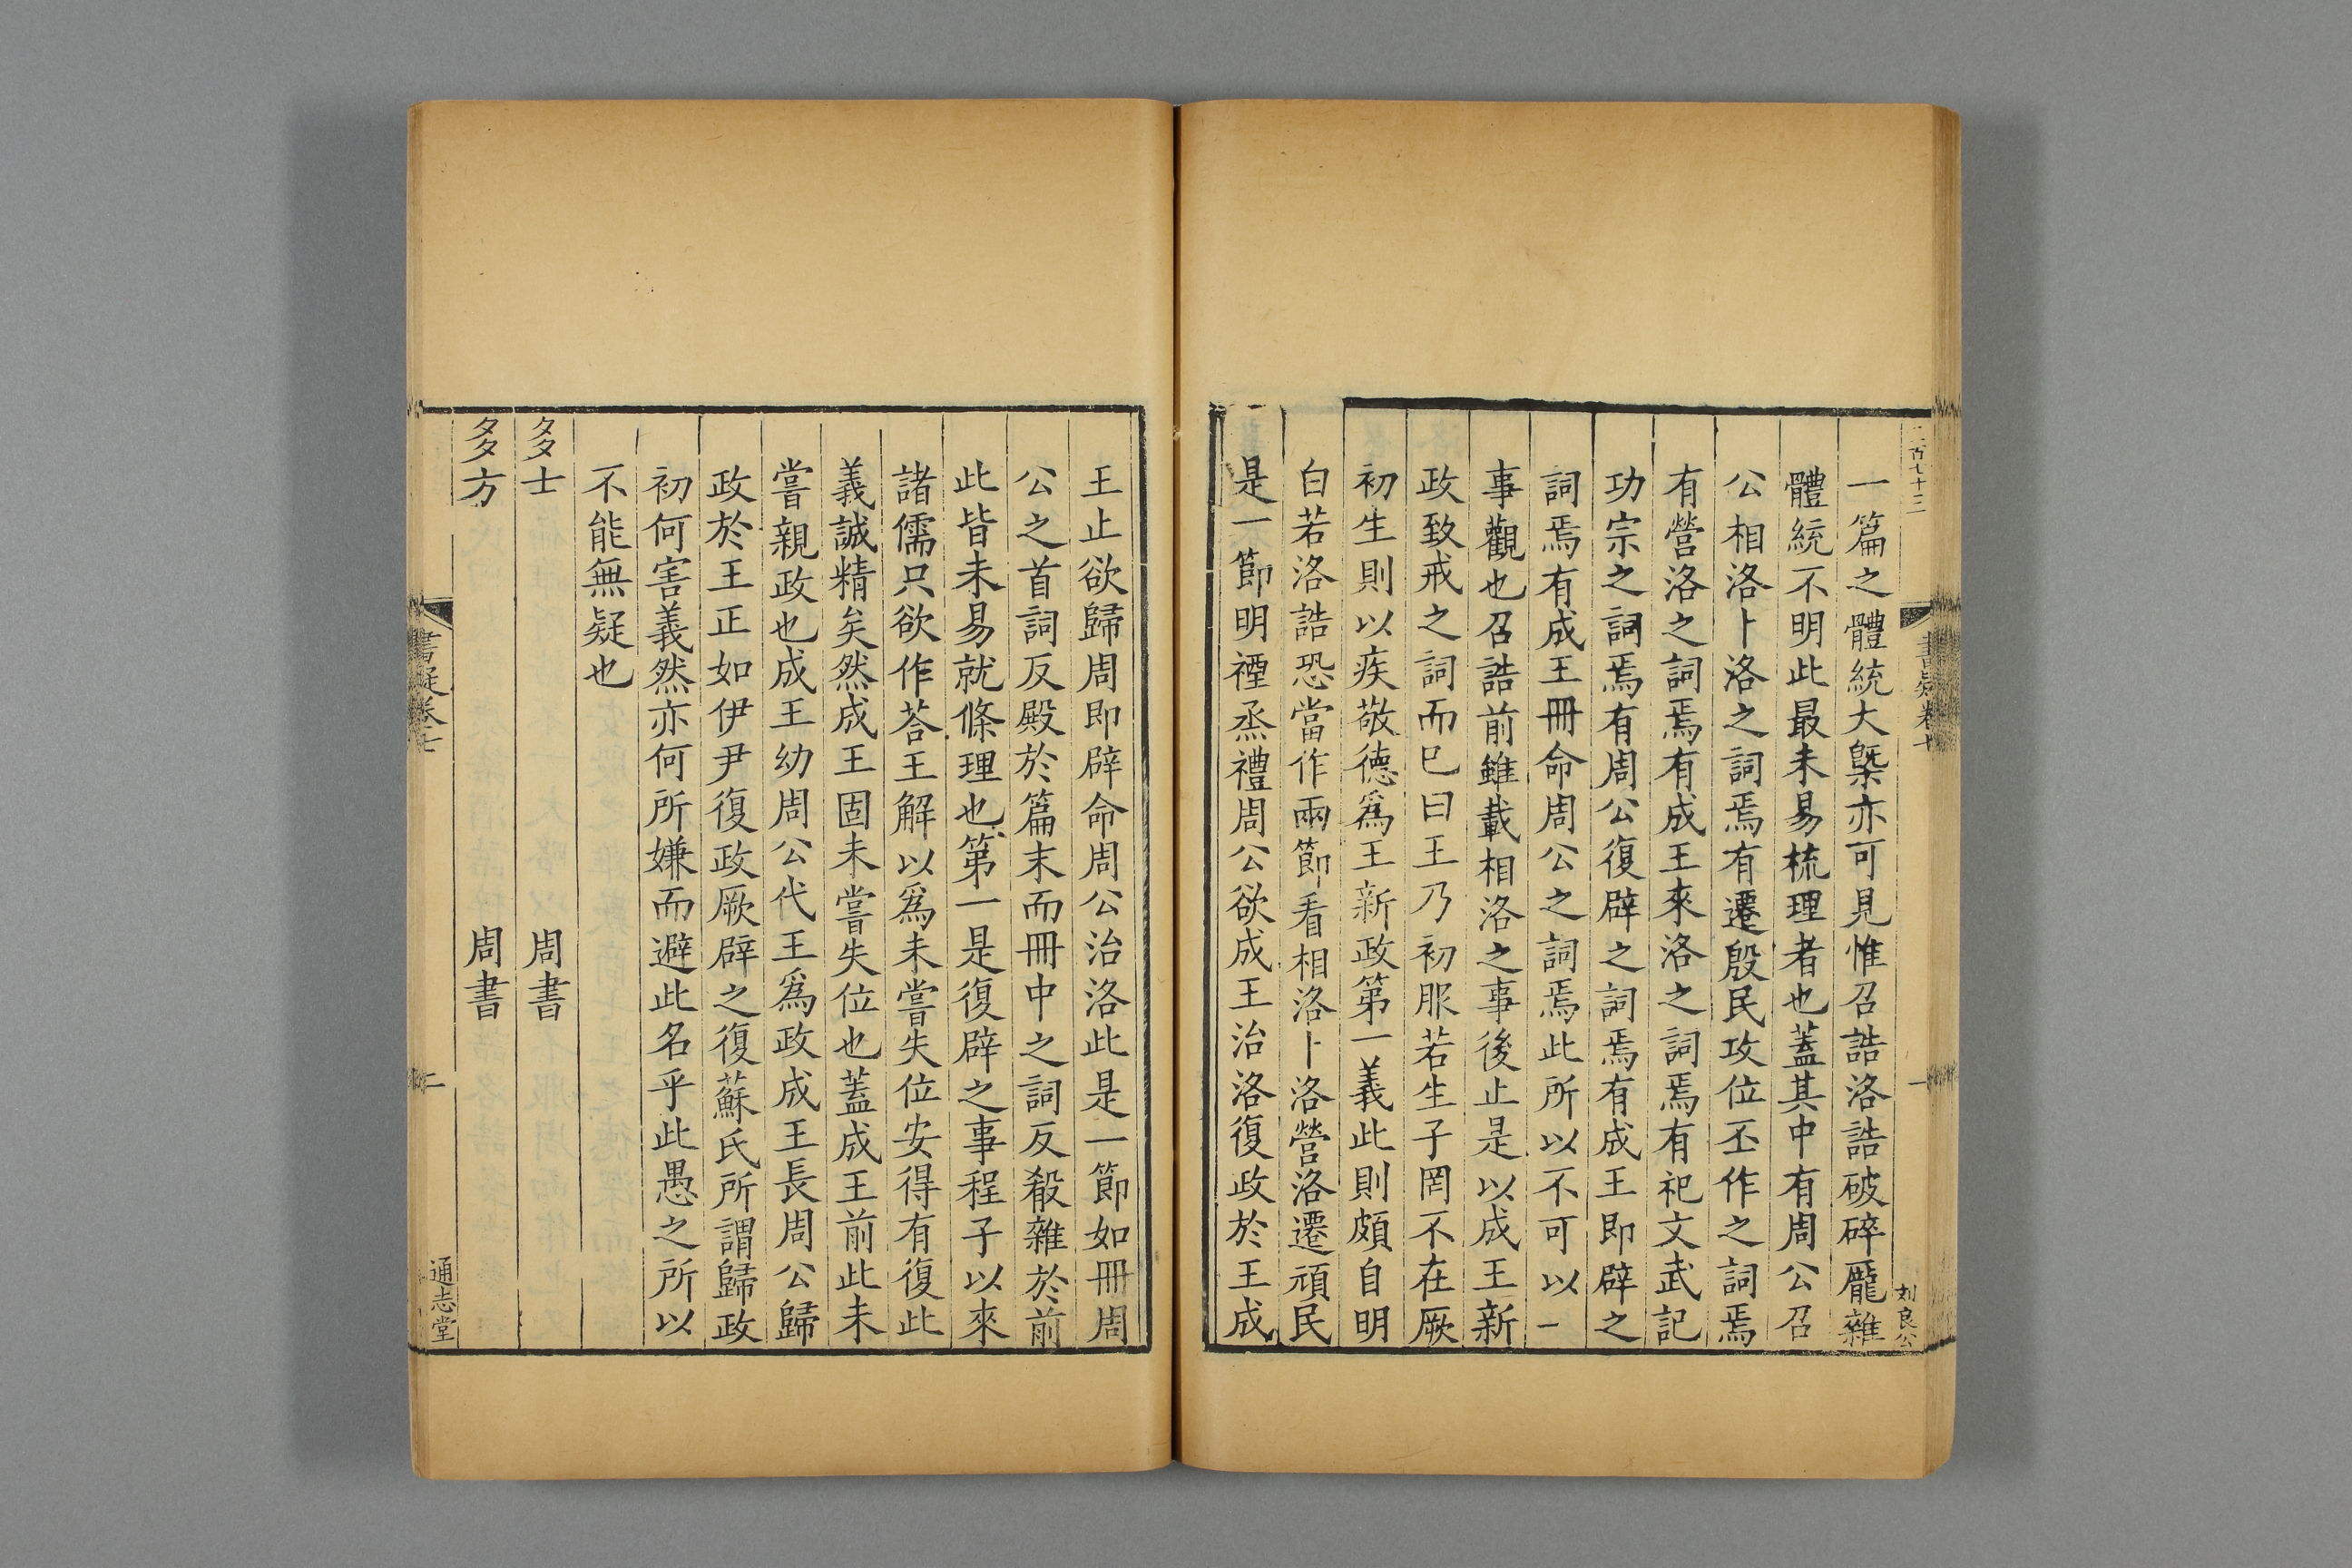 一篇之體統大槩亦可見惟召誥洛誥破碎厖雜
體統不明此最未易梳理者也蓋其中有周公召
公相洛卜洛之詞焉有遷殷民攻位丕作之詞焉
有營洛之詞焉有成王來洛之詞焉有祀文武記
功宗之詞焉有周公復辟之詞焉有成王即辟之
詞焉有成王冊命周公之詞焉此所以不可以一
事觀也召誥前雖載相洛之事後止是以成王新
政致戒之詞而已曰王乃初服若生子罔不在厥
初生則以疾敬德爲王新政第一義此則頗自明
白若洛誥恐當作兩節看相洛卜洛營洛遷頑民
是一節明禋烝禮周公欲成王治洛復政於王成
王止欲歸周即辟命周公治洛此是一節如冊周
公之首詞反殿於篇末而冊中之詞反殽雜於前
此皆未易就條理也第一是復辟之事程子以來
諸儒只欲作荅王解以爲未嘗失位安得有復此
義誠精矣然成王固未嘗失位也蓋成王前此未
嘗親政也成王幼周公代王爲政成王長周公歸
政於王正如伊尹復政厥辟之復蘇氏所謂歸政
初何害義然亦何所嫌而避此名乎此愚之所以
不能無疑也
多士 周書
多方 周書
書疑卷七
二
通志堂
二百七十三
書疑卷七
一
刘良公